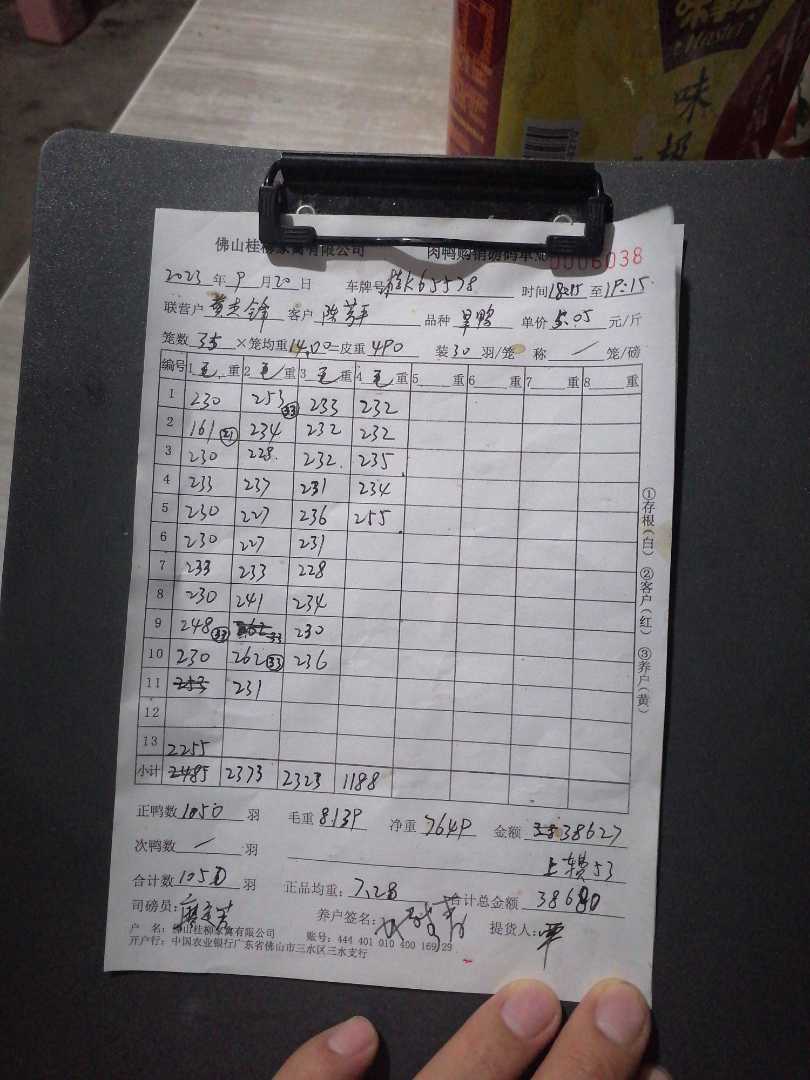 味
Master
味极
佛山桂柳家禽有限公司 肉鸭购销磅码单
0006038
2023年9月20日 车牌号桂K65578 时间18:15至19:15
联营户 客户 陈 平 品种 旱鸭 单价 5.05 元/斤
笼数 35 ×笼均重14.00=皮重490 装30羽/笼 称 / 笼/磅
编号 1毛重 2毛重 3毛重 4毛重 5 重 6 重 7 重 8 重
1 230 253 ㉝ 233 232
2 161 ㉑ 234 232 232
3 230 228 232 235
4 233 237 231 234
5 230 227 236 255
6 230 227 231
7 233 233 228
8 230 241 234
9 248 ㉝ 262 33 230
10 230 262 ㉝ 236
11 253 231
12
13 2255
小计 2485 2373 2323 1188
①存根(白) ②客户(红) ③养户(黄)
正鸭数1050羽 毛重8139 净重7649 金额 38627
次鸭数 / 羽 上车费53
合计数1050羽 正品均重:7.28 合计总金额 38680
司磅员: 养户签名: 提货人:
户 名:佛山桂柳家禽有限公司 账号:444 401 010 400 169 29
开户行:中国农业银行广东省佛山市三水区三水支行